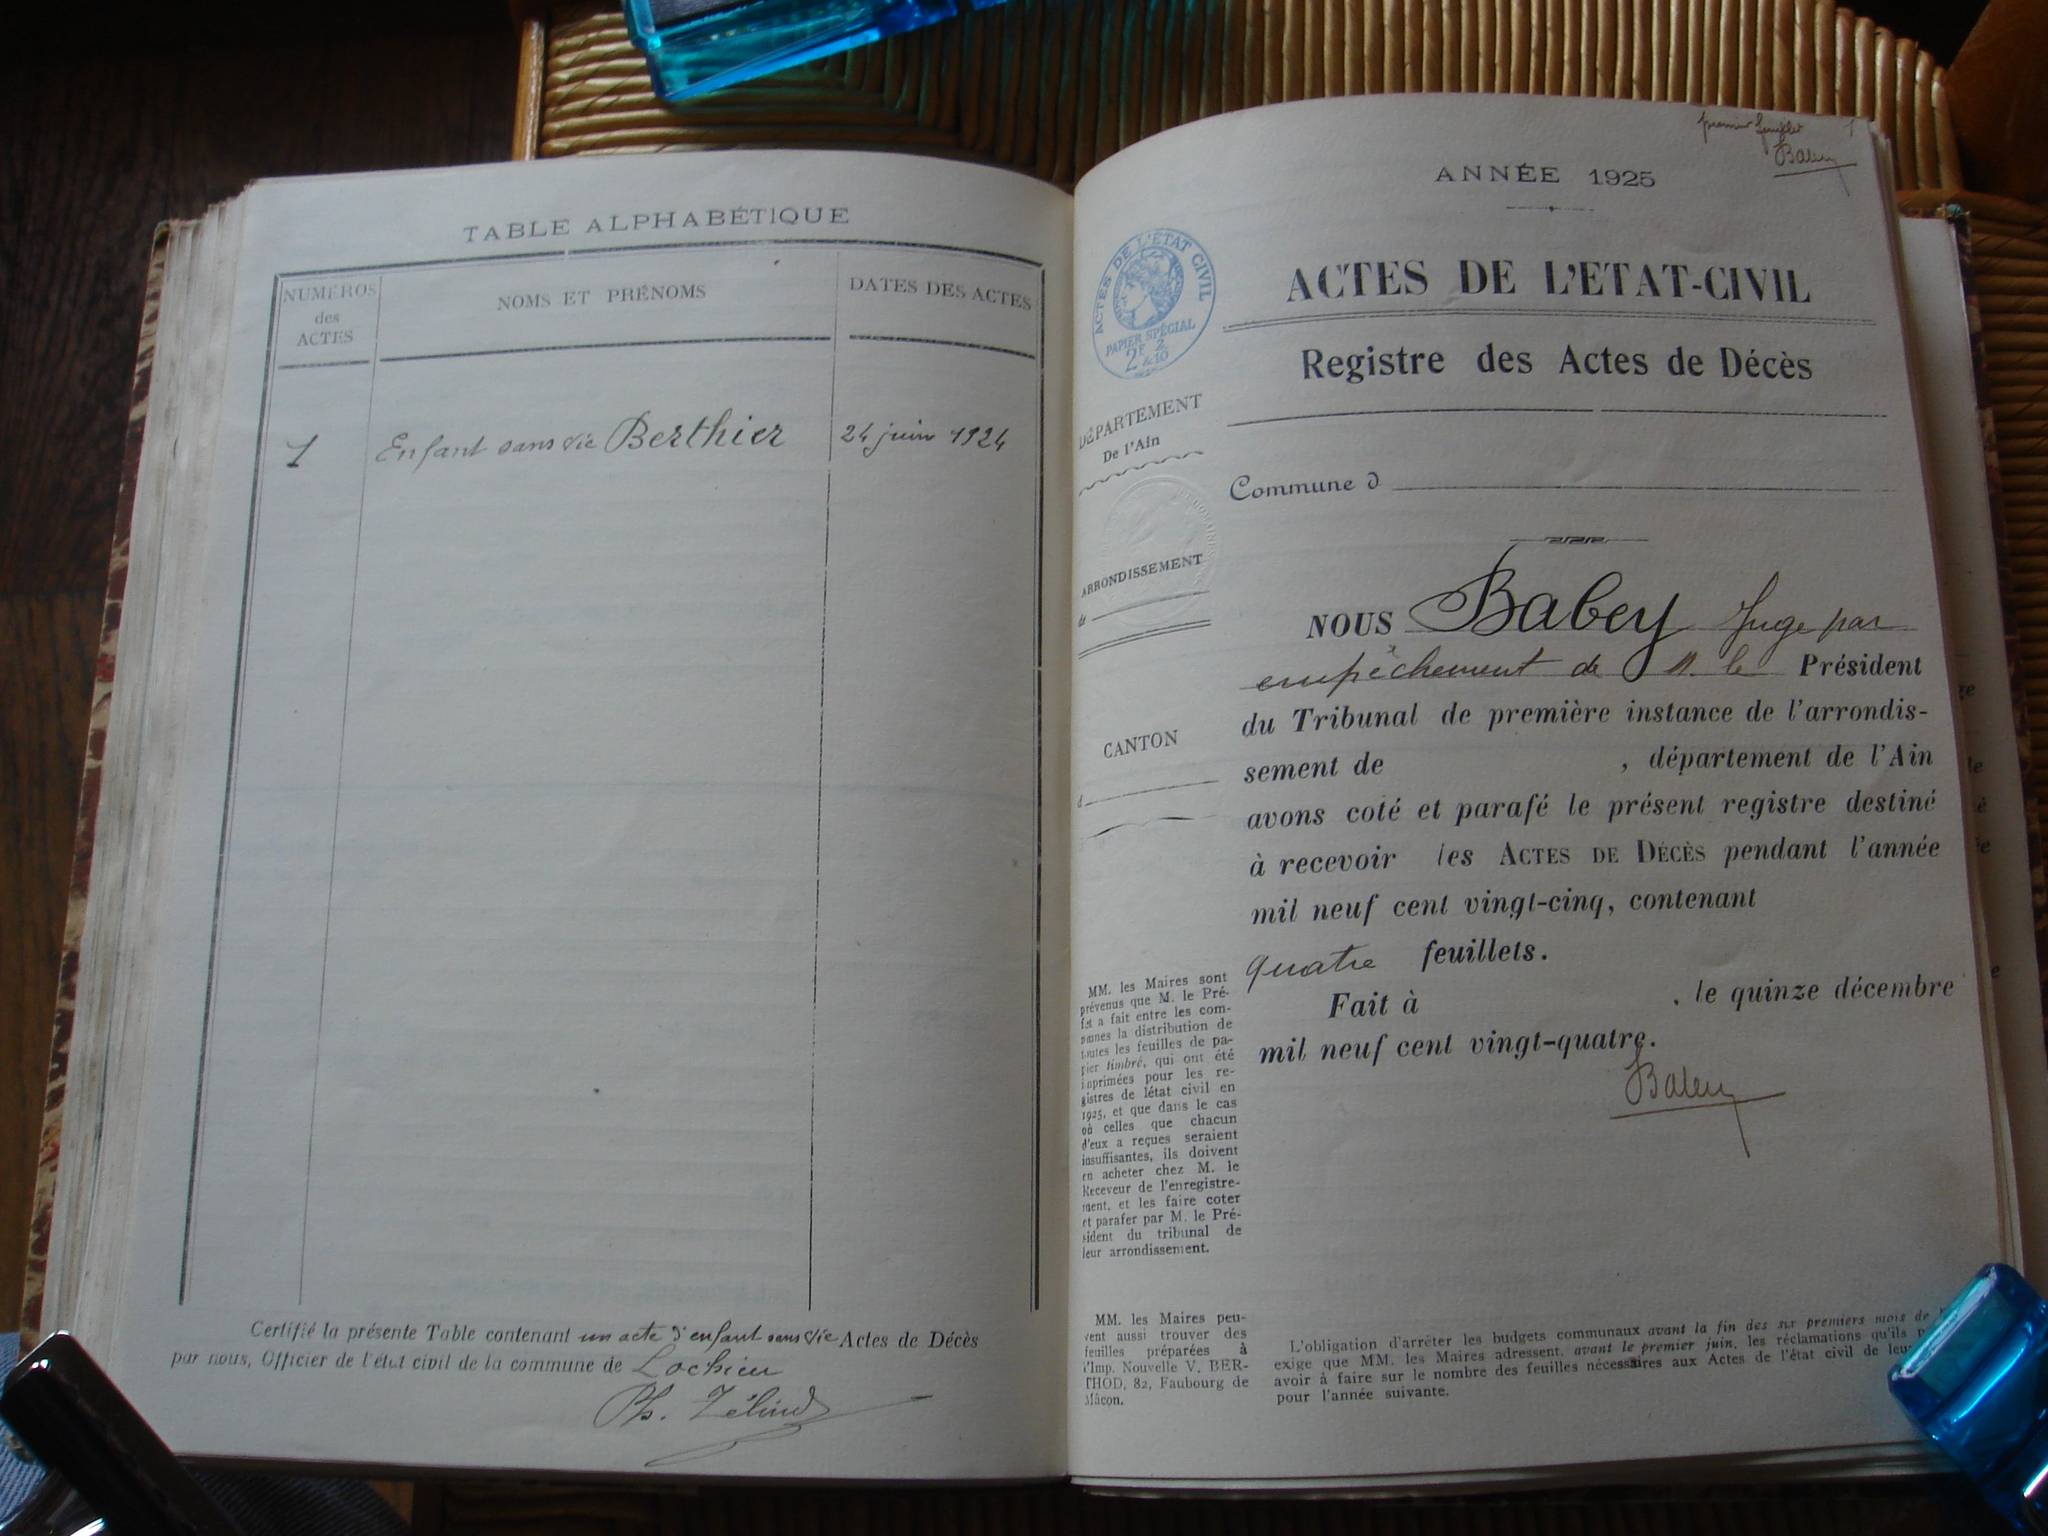 TABLE ALPHABÉTIQUE
NUMÉROS
des
ACTES
NOMS ET PRÉNOMS
DATES DES ACTES
1
Enfant sans vie Berthier
24 juin 1924
Certifié la présente Table contenant un acte d'enfant sans vie Actes de Décès
par nous, Officier de l'état civil de la commune de Lochieu
Ph.
premier feuillet 1
Babey
ANNÉE 1925
ACTES DE L'ÉTAT CIVIL
PAPIER SPÉCIAL
2F 2
&10
ACTES DE L'ETAT-CIVIL
Registre des Actes de Décès
DÉPARTEMENT
De l'Ain
ARRONDISSEMENT
de
CANTON
d
Commune d
NOUS Babey Juge par
empêchement de M. le Président
du Tribunal de première instance de l'arrondis-
sement de , département de l'Ain
avons coté et parafé le présent registre destiné
à recevoir les ACTES DE DÉCÈS pendant l'année
mil neuf cent vingt-cinq, contenant
quatre feuillets.
Fait à , le quinze décembre
mil neuf cent vingt-quatre.
Babey
MM. les Maires sont
prévenus que M. le Pré-
fet a fait entre les com-
munes la distribution de
toutes les feuilles de pa-
pier timbré, qui ont été
imprimées pour les re-
gistres de létat civil en
1925, et que dans le cas
où celles que chacun
d'eux a reçues seraient
insuffisantes, ils doivent
en acheter chez M. le
Receveur de l'enregistre-
ment, et les faire coter
et parafer par M. le Pré-
sident du tribunal de
leur arrondissement.
MM. les Maires peu-
vent aussi trouver des
feuilles préparées à
l'Imp. Nouvelle V. BER-
THOD, 82, Faubourg de
Mâcon.
L'obligation d'arrêter les budgets communaux avant la fin des six premiers mois de
exige que MM. les Maires adressent, avant le premier juin, les réclamations qu'ils
avoir à faire sur le nombre des feuilles nécessaires aux Actes de l'état civil de
pour l'année suivante.